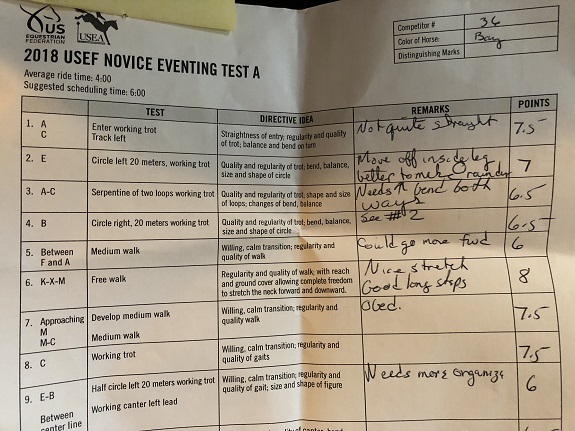 US
EQUESTRIAN
FEDERATION
USEA
2018 USEF NOVICE EVENTING TEST A
Average ride time: 4:00
Suggested scheduling time: 6:00
Competitor # 36
Color of Horse: Bay
Distinguishing Marks
TEST DIRECTIVE IDEA REMARKS POINTS
1. A Enter working trot Straightness of entry; regularity and quality Not quite straight 7.5
C Track left of trot; balance and bend on turn
2. E Circle left 20 meters, working trot Quality and regularity of trot; bend, balance, Move off inside leg 7
size and shape of circle better to make rounder
3. A-C Serpentine of two loops working trot Quality and regularity of trot; shape and size Needs ↑ bend both 6.5
of loops; changes of bend, balance ways
4. B Circle right, 20 meters working trot Quality and regularity of trot; bend, balance, See #2 6.5
size and shape of circle
5. Between Medium walk Willing, calm transition; regularity and Could go more fwd 6
F and A quality of walk
6. K-X-M Free walk Regularity and quality of walk; with reach Nice stretch 8
and ground cover allowing complete freedom Good long steps
to stretch the neck forward and downward.
7. Approaching Develop medium walk Willing, calm transition; regularity and Obed. 7.5
M quality walk
M-C Medium walk
8. C Working trot Willing, calm transition; regularity and 7.5
quality of gaits
9. E-B Half circle left 20 meters working trot Willing, calm transition; regularity and Needs more organize 6
quality of gait; size and shape of figure
Between Working canter left lead
center line